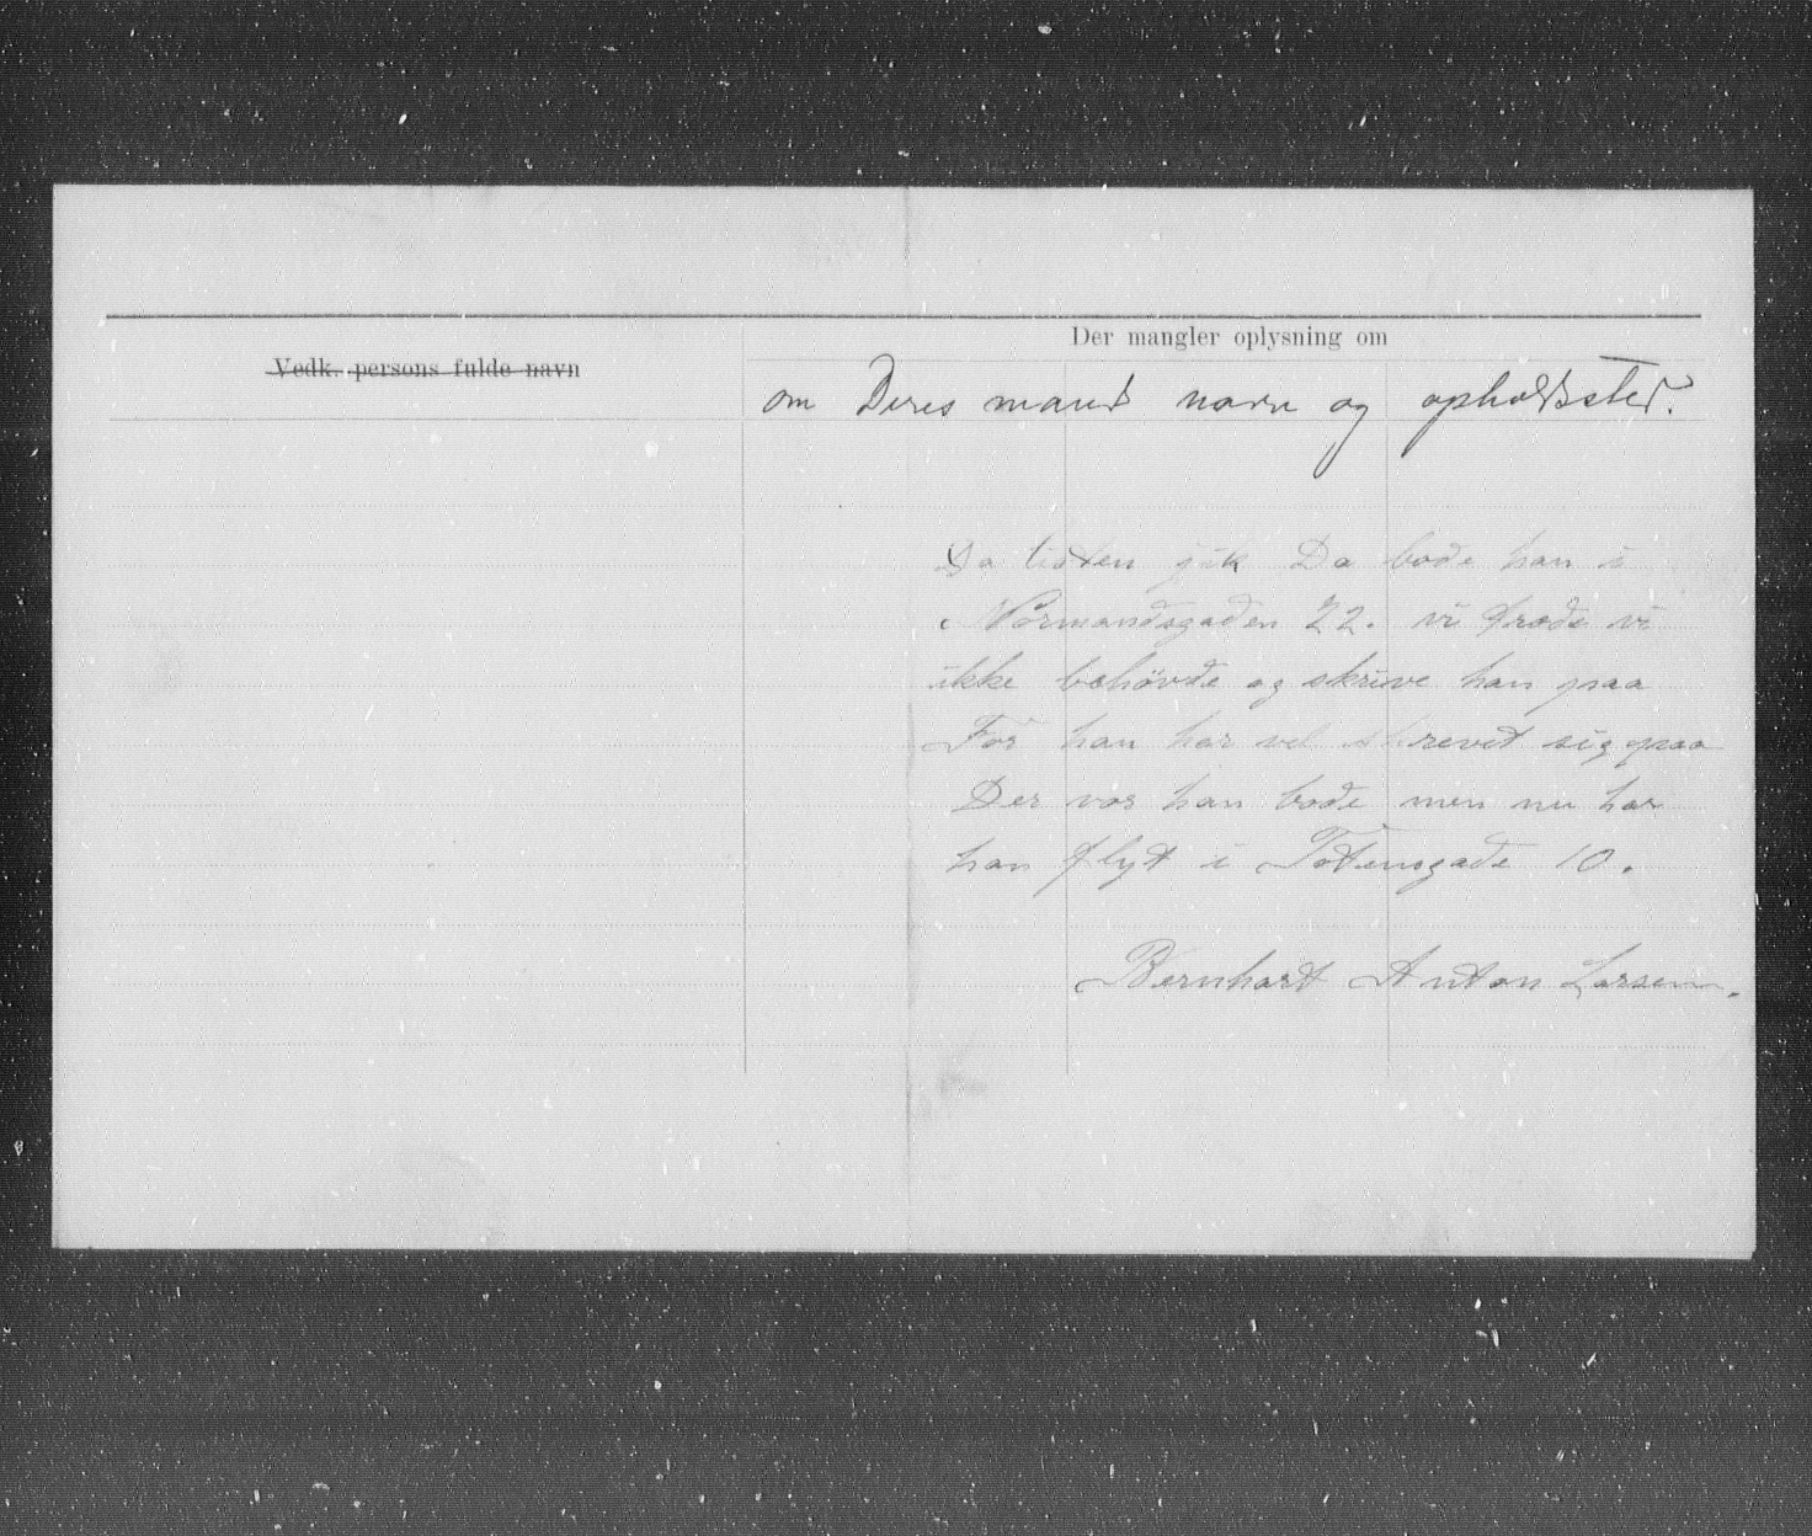 Der mangler oplysning om
Vedk. persons fulde navn
om Deres mands navn og opholdssted.
Da listen gik Da bode han i
Normandsgaden 22. vi trode vi
ikke behövde og skrive han paa
For han har vel skrevet sig paa
Der vor han bode men nu har
han flyt i Totensgade 10.
Bernhart Anton Larsen.